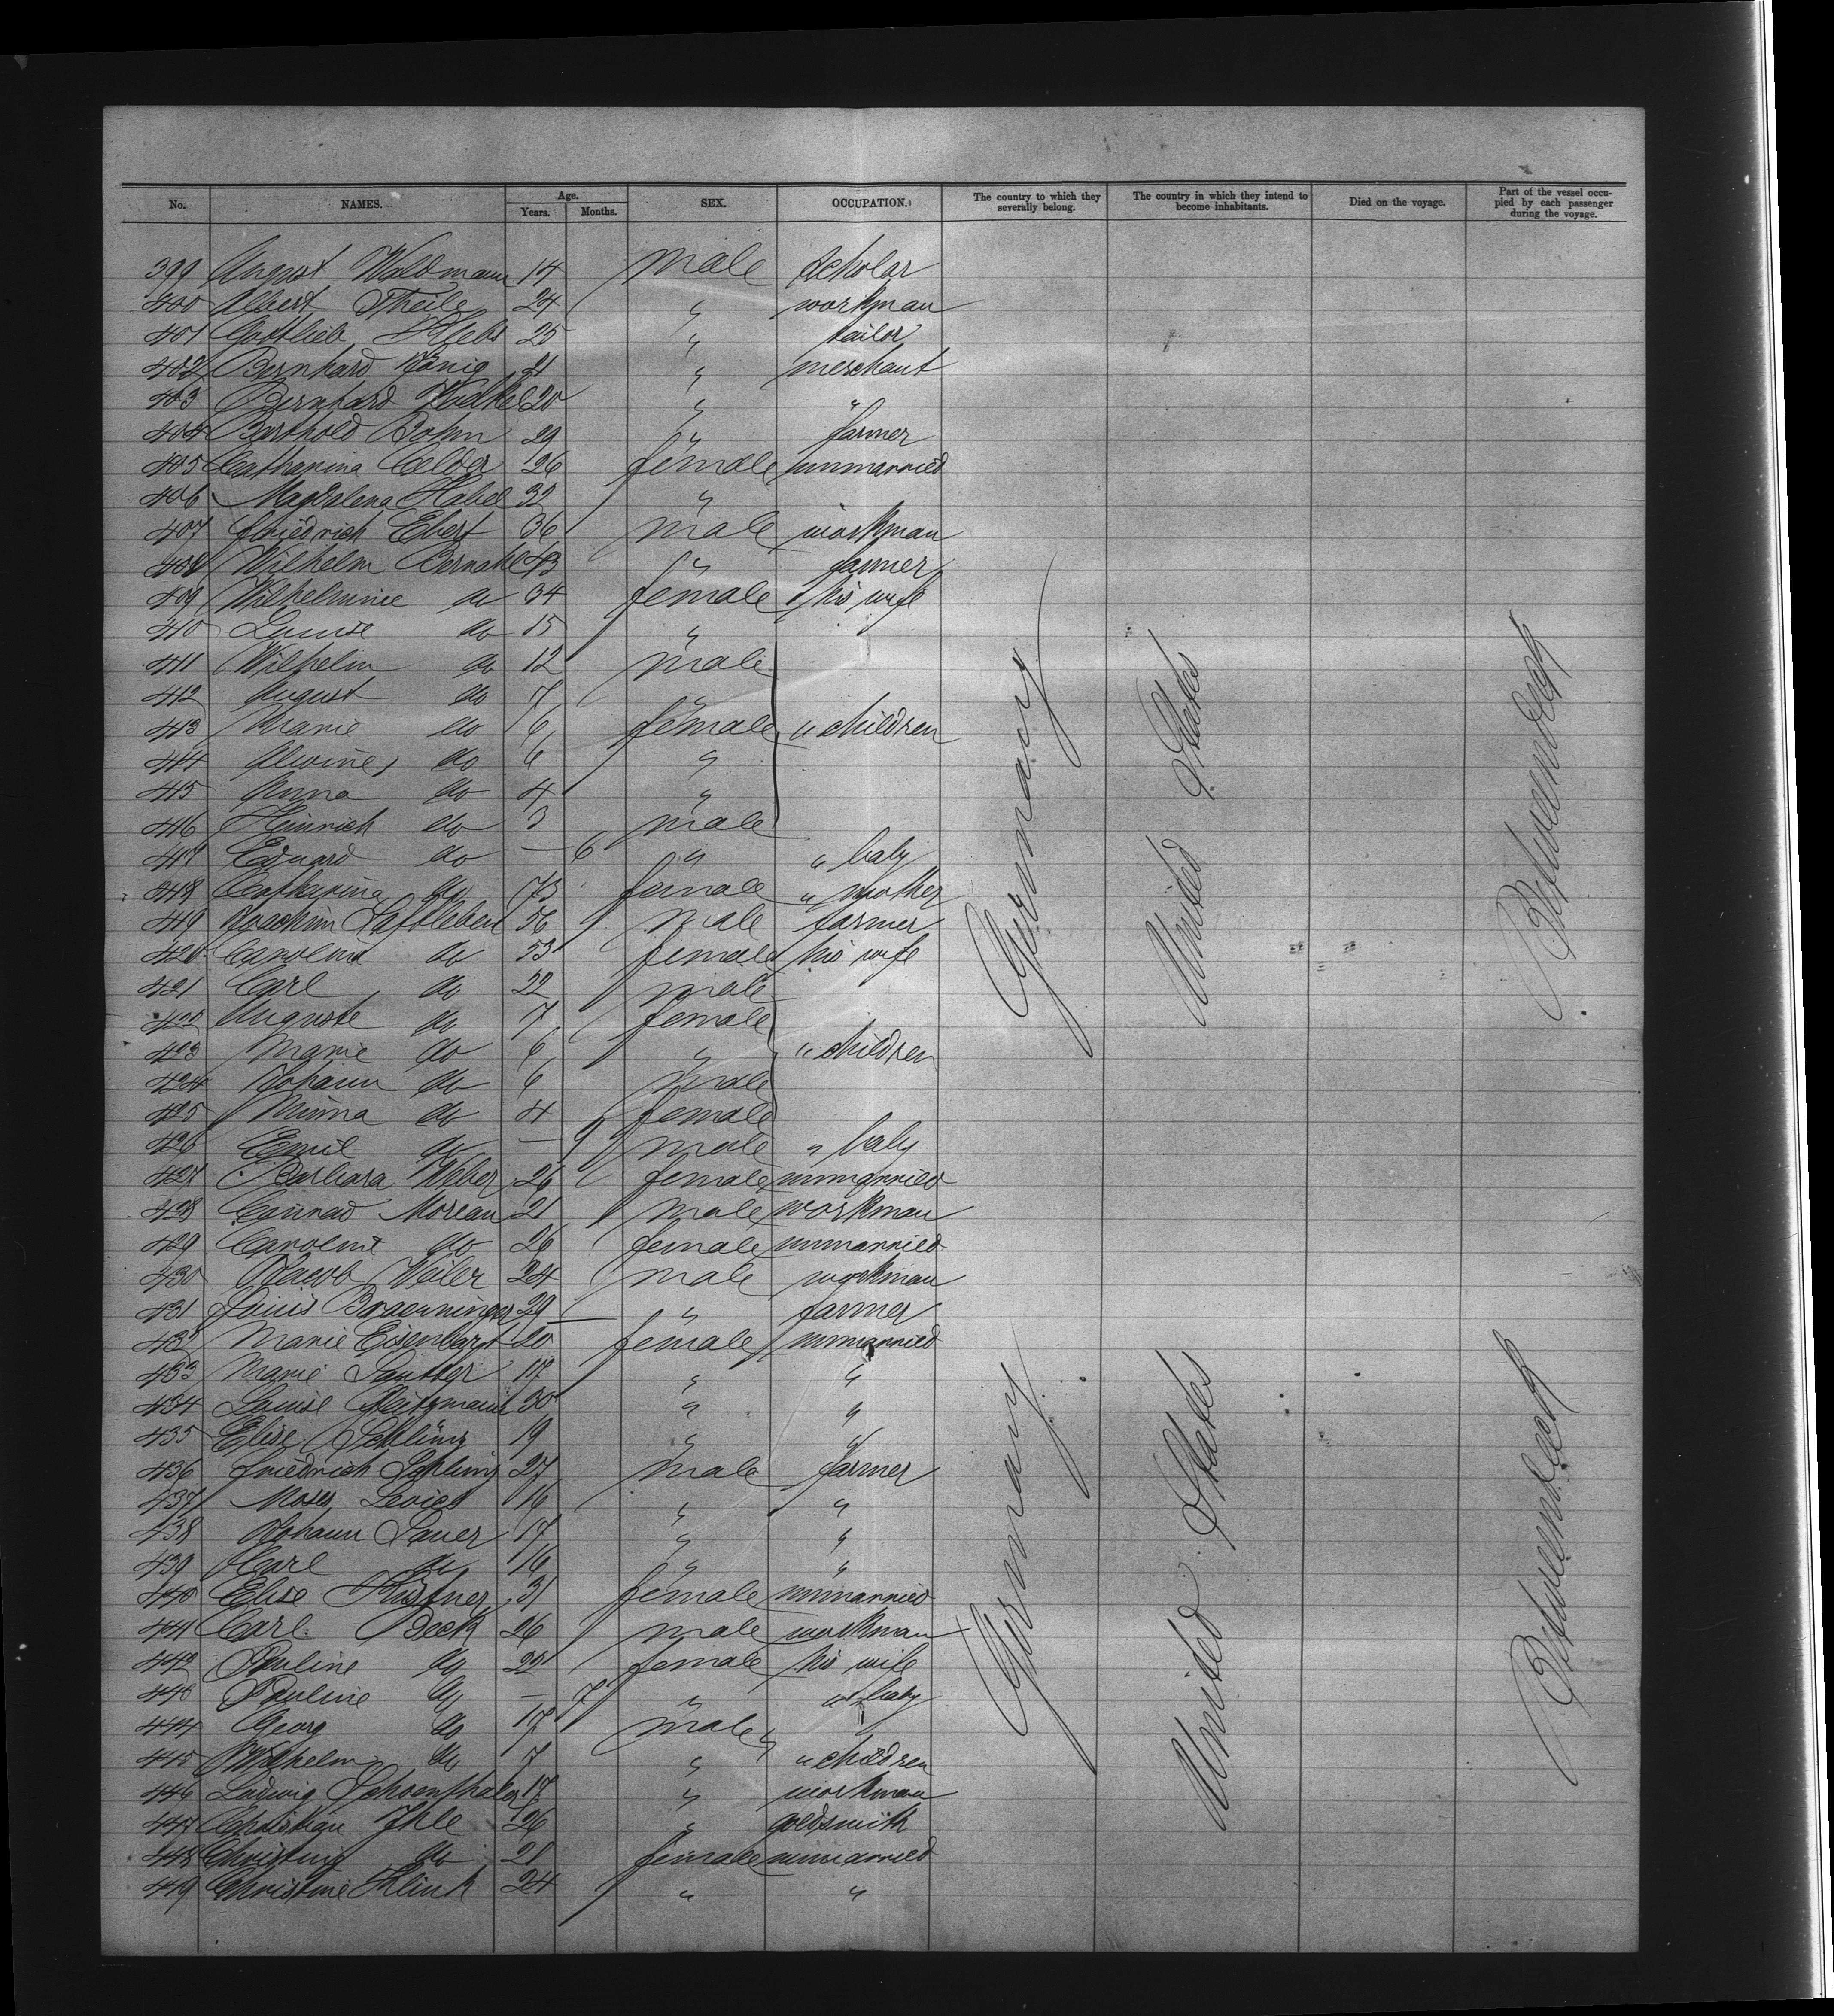 No. NAMES. Age. Years. Months. SEX. OCCUPATION. The country to which they severally belong. The country in which they intend to become inhabitants. Died on the voyage. Part of the vessel occupied by each passenger during the voyage.
399 August Waldmann 14 male scholar
400 Albert Theile 24 " workman
401 Gottlieb Klebs 25 " tailor
402 Bernhard König 21 " merchant
403 Bernhard 20 " "
404 Barthold Bohn 29 " farmer
405 Catharina Celda 26 female unmarried
406 Magdalena Habel 32 "
407 Friedrich Ebert 36 male workman
408 Wilhelm 43 " farmer
409 Wilhelmine do 34 female his wife
410 Louise do 15 "
411 Wilhelm do 12 male
412 August do 7 "
413 Marie do 6 female " children
414 Alwine do 6 "
415 Anna do 4 "
416 Heinrich do 3 male
417 Eduard do — 6 " " baby
418 Catharina do 73 female " mother
419 Joachim 56 male farmer
420 Caroline do 53 female his wife
421 Carl do 22 male
422 Auguste do 7 female
423 Marie do 6 " " children
424 Johann do 6 male
425 Minna do 4 female
426 Emil do — 9 male " baby
427 Barbara Weber 26 female unmarried
428 Conrad Moreau 21 male workman
429 Caroline do 26 female unmarried
430 Jacob Weiler 24 male workman
431 Louis Braeuninger 29 " farmer
432 Marie Eisenbart 20 female unmarried
433 Marie Sautter 17 " "
434 Louise 30 " "
435 Elise Schling 19 " "
436 Friedrich Schling 27 male farmer
437 Moses 16 " "
438 Johann Sauer 17 " "
439 Carl do 16 " "
440 Elise Küstner 31 female unmarried
441 Carl Beck 26 male workman
442 Pauline do 22 female his wife
443 Pauline do — 7 " " baby
444 Georg do 17 male
445 Wilhelm do 7 " " children
446 Ludwig Schoenthaler 17 " workman
447 Christian Ihle 26 " goldsmith
448 Christine do 21 female unmarried
449 Christine Klink 24 " "
Germany
United States
Betweendeck
Germany
United States
Betweendeck